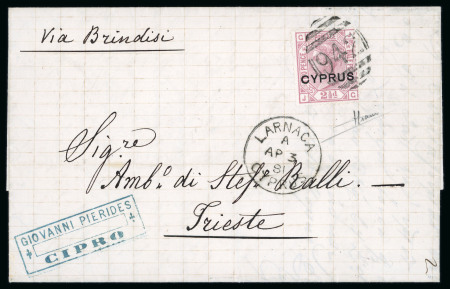 Via Brindisi
C C
CYPRUS
2½
942
LARNACA
A
AP 3
81
CYPRUS
Sigre
Ambo. di Stef. Ralli. —
Trieste
GIOVANNI PIERIDES
CIPRO